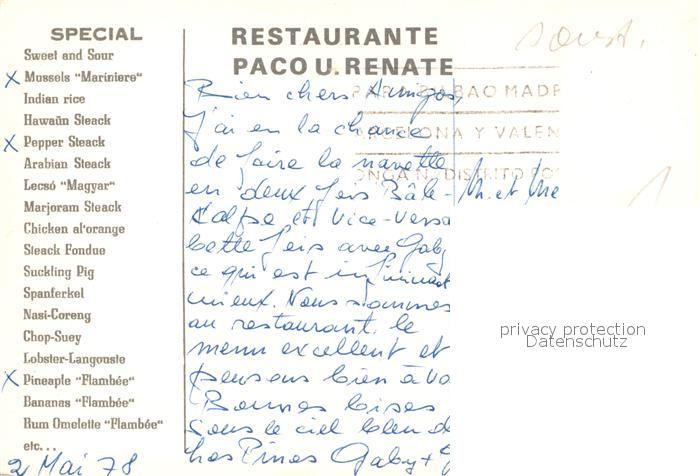 SPECIAL
Sweet and Sour
X Mussels "Mariniere"
Indian rice
Hawaün Steack
X Pepper Steack
Arabian Steack
Lecsó "Magyar"
Marjoram Steack
Chicken al'orange
Steack Fondue
Suckling Pig
Spanferkel
Nasi-Coreng
Chop-Suey
Lobster-Langouste
X Pineaple "Flambée"
Bananas "Flambée"
Rum Omelette "Flambée"
etc...
2 Mai 78
RESTAURANTE
PACO U. RENATE
Bien chers Amigos,
J'ai eu la chance
de faire la navette
en deux fois Bâle-
Calpe et vice-versa
cette fois avec Gaby
ce qui est infiniment
mieux. Nous sommes
au restaurant. le
menu excellent et
pensons bien à vo
Bonnes bises
sous le ciel bleu d
Los Pinos Gaby +
BAO MADR
ELONA Y VALEN
ONGA N. DISTRITO PO
M. et Me
privacy protection
Datenschutz